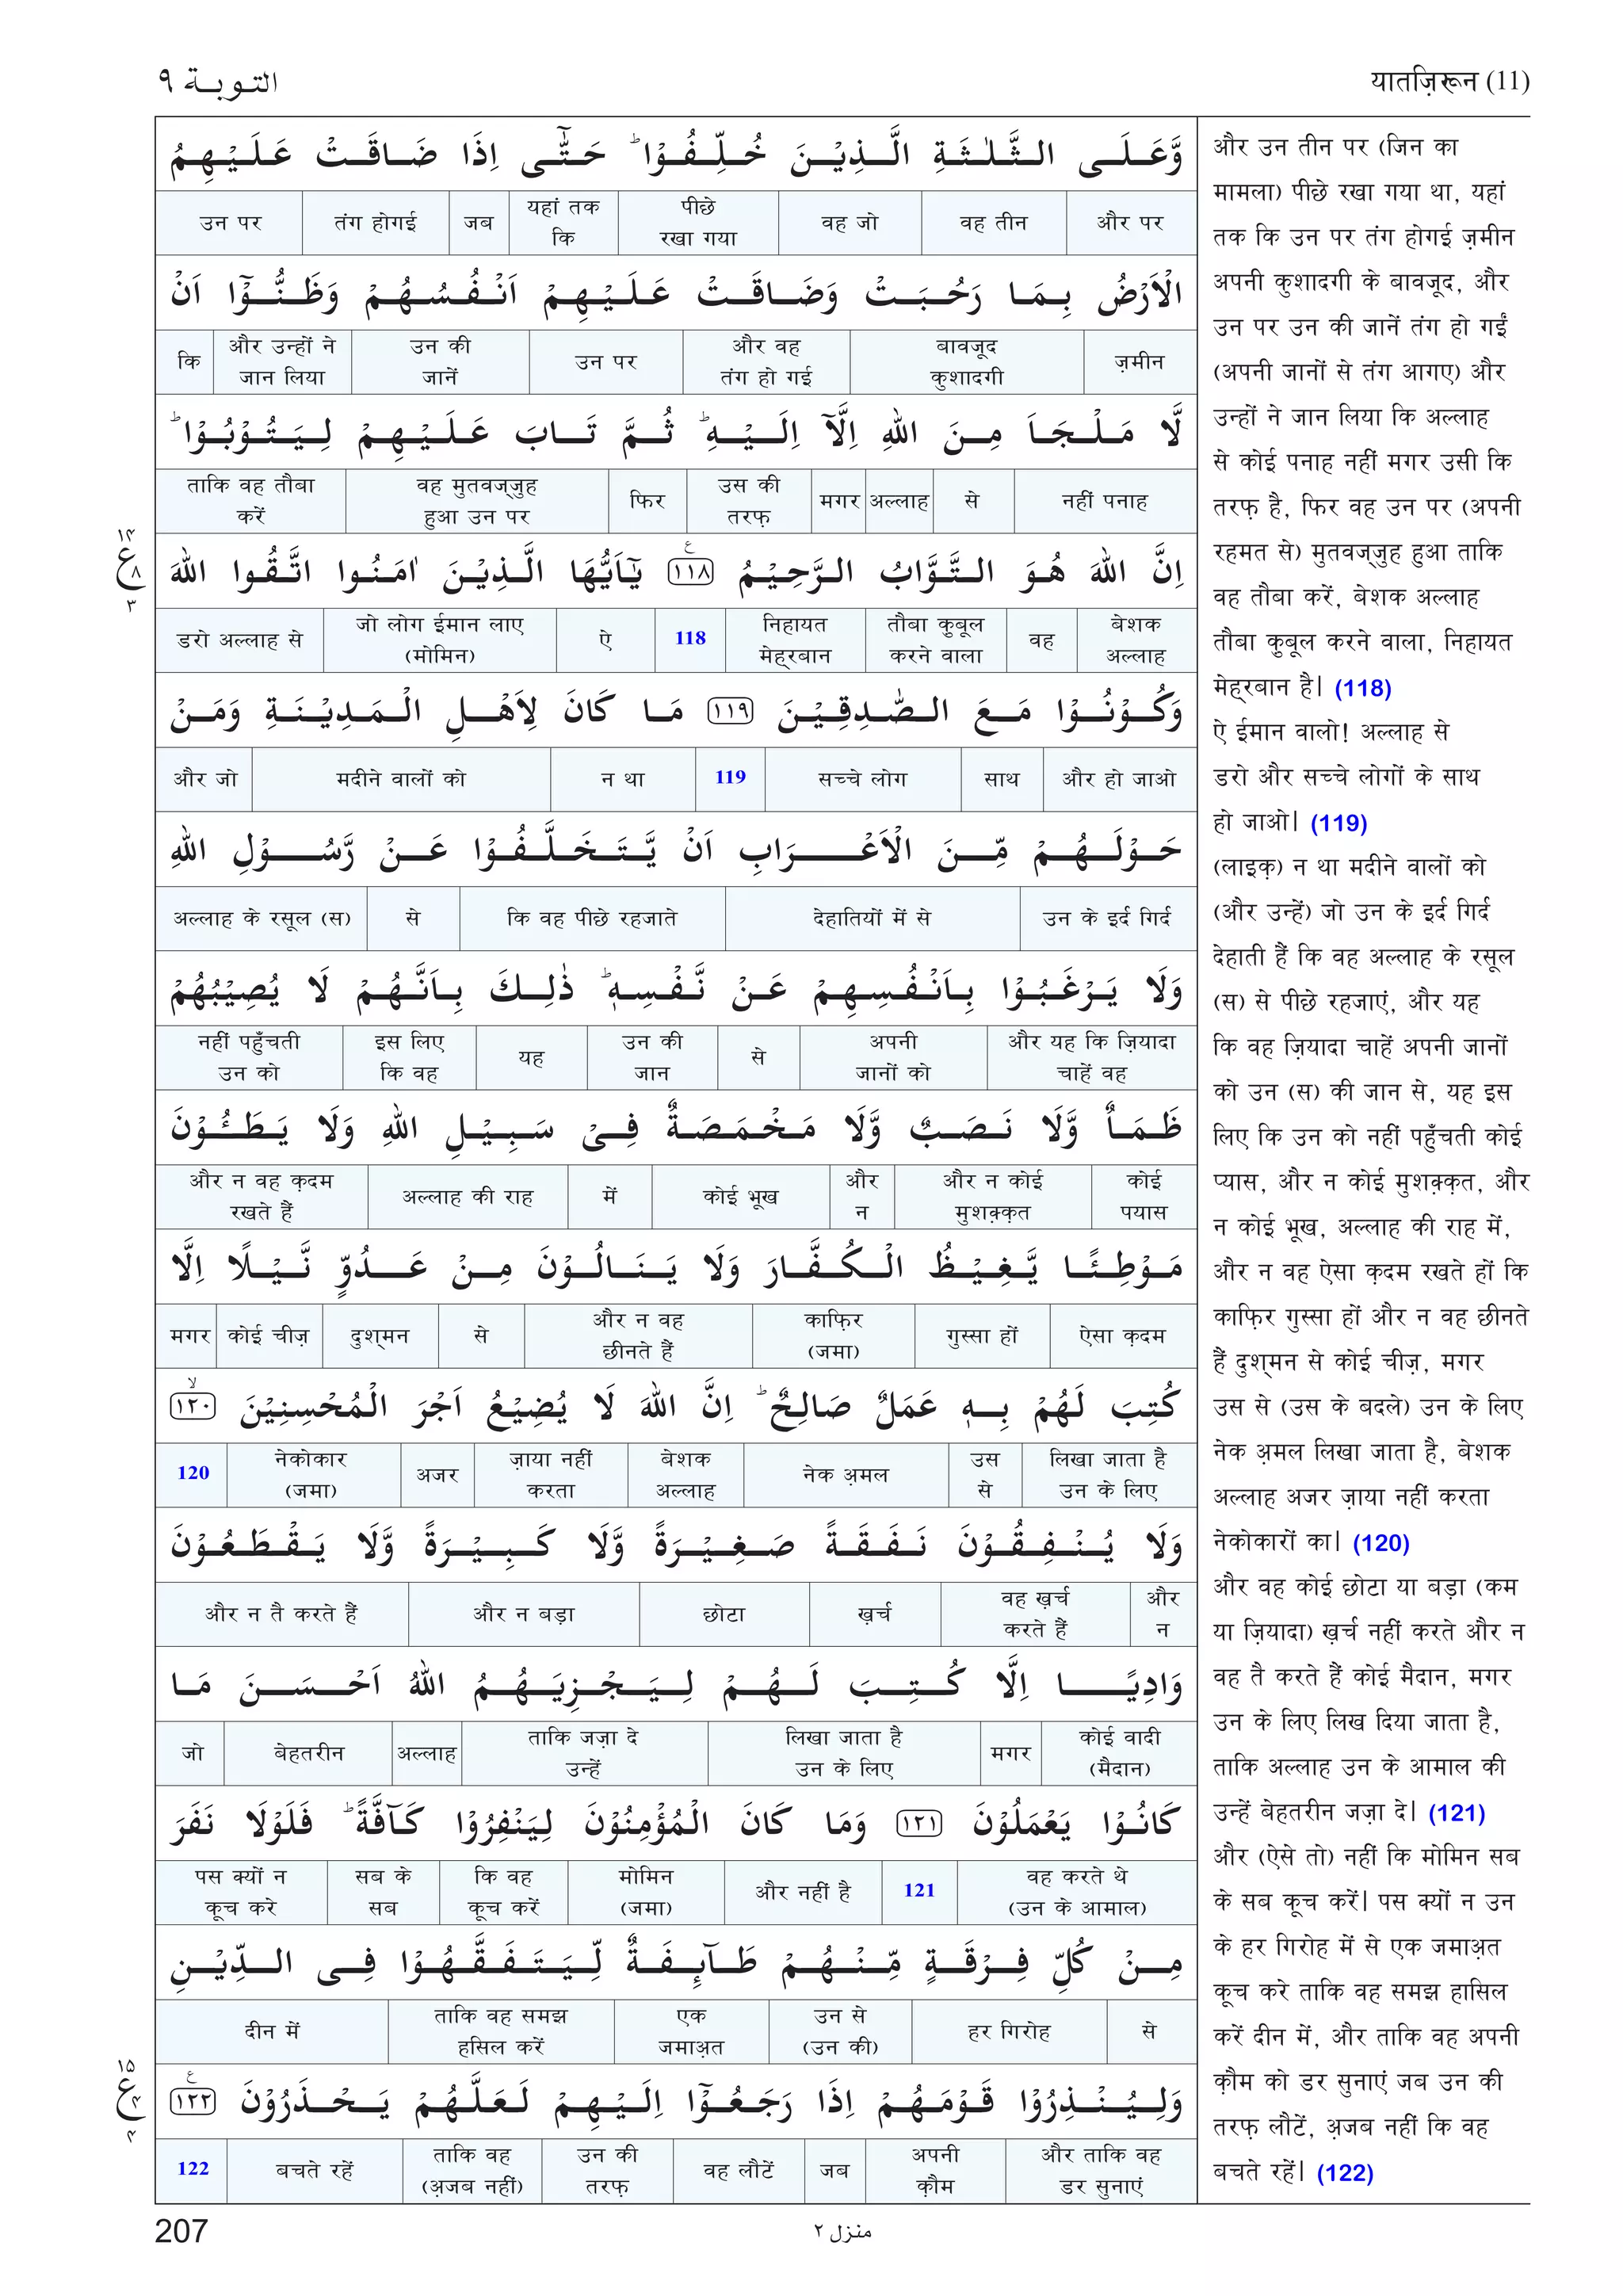 التوبة ٩
यातज़िरून (11)
وَّعَلَى الثَّلٰثَةِ الَّذِيْنَ خُلِّفُوْا ؕ حَتّٰٓى اِذَا ضَاقَتْ عَلَيْهِمُ
और पर | वह तीन | वह जो | पीछे रखा गया | यहां तक कि | जब | तंग होगई | उन पर
الْاَرْضُ بِمَا رَحُبَتْ وَضَاقَتْ عَلَيْهِمْ اَنْفُسُهُمْ وَظَنُّوْٓا اَنْ
ज़मीन | बावजूद कुशादगी | और वह तंग हो गई | उन पर | उन की जानें | और उन्हों ने जान लिया | कि
لَّا مَلْجَاَ مِنَ اللّٰهِ اِلَّآ اِلَيْهِ ؕ ثُمَّ تَابَ عَلَيْهِمْ لِيَتُوْبُوْا ؕ
नहीं पनाह | से | अल्लाह | मगर | उस की तरफ़ | फिर | वह मुतवज्जुह हुआ उन पर | ताकि वह तौबा करें
اِنَّ اللّٰهَ هُوَ التَّوَّابُ الرَّحِيْمُ ١١٨ ع يٰٓاَيُّهَا الَّذِيْنَ اٰمَنُوا اتَّقُوا اللّٰهَ
बेशक अल्लाह | वह | तौबा कुबूल करने वाला | निहायत मेह्रबान | 118 | ऐ | जो लोग ईमान लाए (मोमिन) | डरो अल्लाह से
وَكُوْنُوْا مَعَ الصّٰدِقِيْنَ ١١٩ مَا كَانَ لِاَهْلِ الْمَدِيْنَةِ وَمَنْ
और हो जाओ | साथ | सच्चे लोग | 119 | न था | मदीने वालों को | और जो
حَوْلَهُمْ مِّنَ الْاَعْرَابِ اَنْ يَّتَخَلَّفُوْا عَنْ رَّسُوْلِ اللّٰهِ
उन के इर्द गिर्द | देहातियों में से | कि वह पीछे रहजाते | से | अल्लाह के रसूल (स)
وَلَا يَرْغَبُوْا بِاَنْفُسِهِمْ عَنْ نَّفْسِهٖ ؕ ذٰلِكَ بِاَنَّهُمْ لَا يُصِيْبُهُمْ
और यह कि ज़ियादा चाहें वह | अपनी जानों को | से | उन की जान | यह | इस लिए कि वह | नहीं पहुँचती उन को
ظَمَاٌ وَّلَا نَصَبٌ وَّلَا مَخْمَصَةٌ فِيْ سَبِيْلِ اللّٰهِ وَلَا يَطَـُٔوْنَ
कोई पयास | और न कोई मुशक़्क़त | और न | कोई भूख | में | अल्लाह की राह | और न वह क़दम रखते हैं
مَوْطِئًا يَّغِيْظُ الْكُفَّارَ وَلَا يَنَالُوْنَ مِنْ عَدُوٍّ نَّيْلًا اِلَّا
ऐसा क़दम | गुस्सा हों | काफ़िर (जमा) | और न वह छीनते हैं | से | दुश्मन | कोई चीज़ | मगर
كُتِبَ لَهُمْ بِهٖ عَمَلٌ صَالِحٌ ؕ اِنَّ اللّٰهَ لَا يُضِيْعُ اَجْرَ الْمُحْسِنِيْنَ ١٢٠ لا
लिखा जाता है उन के लिए | उस से | नेक अ़मल | बेशक अल्लाह | ज़ाया नहीं करता | अजर | नेकोकार (जमा) | 120
وَلَا يُنْفِقُوْنَ نَفَقَةً صَغِيْرَةً وَّلَا كَبِيْرَةً وَّلَا يَقْطَعُوْنَ
और न | वह ख़र्च करते हैं | ख़र्च | छोटा | और न बड़ा | और न तै करते हैं
وَادِيًا اِلَّا كُتِبَ لَهُمْ لِيَجْزِيَهُمُ اللّٰهُ اَحْسَنَ مَا
कोई वादी (मैदान) | मगर | लिखा जाता है उन के लिए | ताकि जज़ा दे उन्हें | अल्लाह | बेहतरीन | जो
كَانُوْا يَعْمَلُوْنَ ١٢١ وَمَا كَانَ الْمُؤْمِنُوْنَ لِيَنْفِرُوْا كَآفَّةً ؕ فَلَوْلَا نَفَرَ
वह करते थे (उन के आमाल) | 121 | और नहीं है | मोमिन (जमा) | कि वह कूच करें | सब के सब | पस क्यों न कूच करे
مِنْ كُلِّ فِرْقَةٍ مِّنْهُمْ طَآئِفَةٌ لِّيَتَفَقَّهُوْا فِى الدِّيْنِ
से | हर गिरोह | उन से (उन की) | एक जमाअ़त | ताकि वह समझ हसिल करें | दीन में
وَلِيُنْذِرُوْا قَوْمَهُمْ اِذَا رَجَعُوْٓا اِلَيْهِمْ لَعَلَّهُمْ يَحْذَرُوْنَ ١٢٢ ع
और ताकि वह डर सुनाएं | अपनी क़ौम | जब | वह लौटें | उन की तरफ़ | ताकि वह (अ़जब नहीं) | बचते रहें | 122
١٤ ع ٨ ٣
١٥ ع ٤ ٤
और उन तीन पर (जिन का
मामला) पीछे रखा गया था, यहां
तक कि उन पर तंग होगई ज़मीन
अपनी कुशादगी के बावजूद, और
उन पर उन की जानें तंग हो गईं
(अपनी जानों से तंग आगए) और
उन्हों ने जान लिया कि अल्लाह
से कोई पनाह नहीं मगर उसी कि
तरफ़ है, फिर वह उन पर (अपनी
रहमत से) मुतवज्जुह हुआ ताकि
वह तौबा करें, बेशक अल्लाह
तौबा कुबूल करने वाला, निहायत
मेह्रबान है। (118)
ऐ ईमान वालो! अल्लाह से
डरो और सच्चे लोगों के साथ
हो जाओ। (119)
(लाइक़) न था मदीने वालों को
(और उन्हें) जो उन के इर्द गिर्द
देहाती हैं कि वह अल्लाह के रसूल
(स) से पीछे रहजाएं, और यह
कि वह ज़ियादा चाहें अपनी जानों
को उन (स) की जान से, यह इस
लिए कि उन को नहीं पहुँचती कोई
प्यास, और न कोई मुशक़्क़त, और
न कोई भूख, अल्लाह की राह में,
और न वह ऐसा क़दम रखते हों कि
काफ़िर गुस्सा हों और न वह छीनते
हैं दुश्मन से कोई चीज़, मगर
उस से (उस के बदले) उन के लिए
नेक अ़मल लिखा जाता है, बेशक
अल्लाह अजर ज़ाया नहीं करता
नेकोकारों का। (120)
और वह कोई छोटा या बड़ा (कम
या ज़ियादा) ख़र्च नहीं करते और न
वह तै करते हैं कोई मैदान, मगर
उन के लिए लिख दिया जाता है,
ताकि अल्लाह उन के आमाल की
उन्हें बेहतरीन जज़ा दे। (121)
और (ऐसे तो) नहीं कि मोमिन सब
के सब कूच करें। पस क्यों न उन
के हर गिरोह में से एक जमाअ़त
कूच करे ताकि वह समझ हासिल
करें दीन में, और ताकि वह अपनी
क़ौम को डर सुनाएं जब उन की
तरफ़ लौटें, अ़जब नहीं कि वह
बचते रहें। (122)
207
منزل ٢